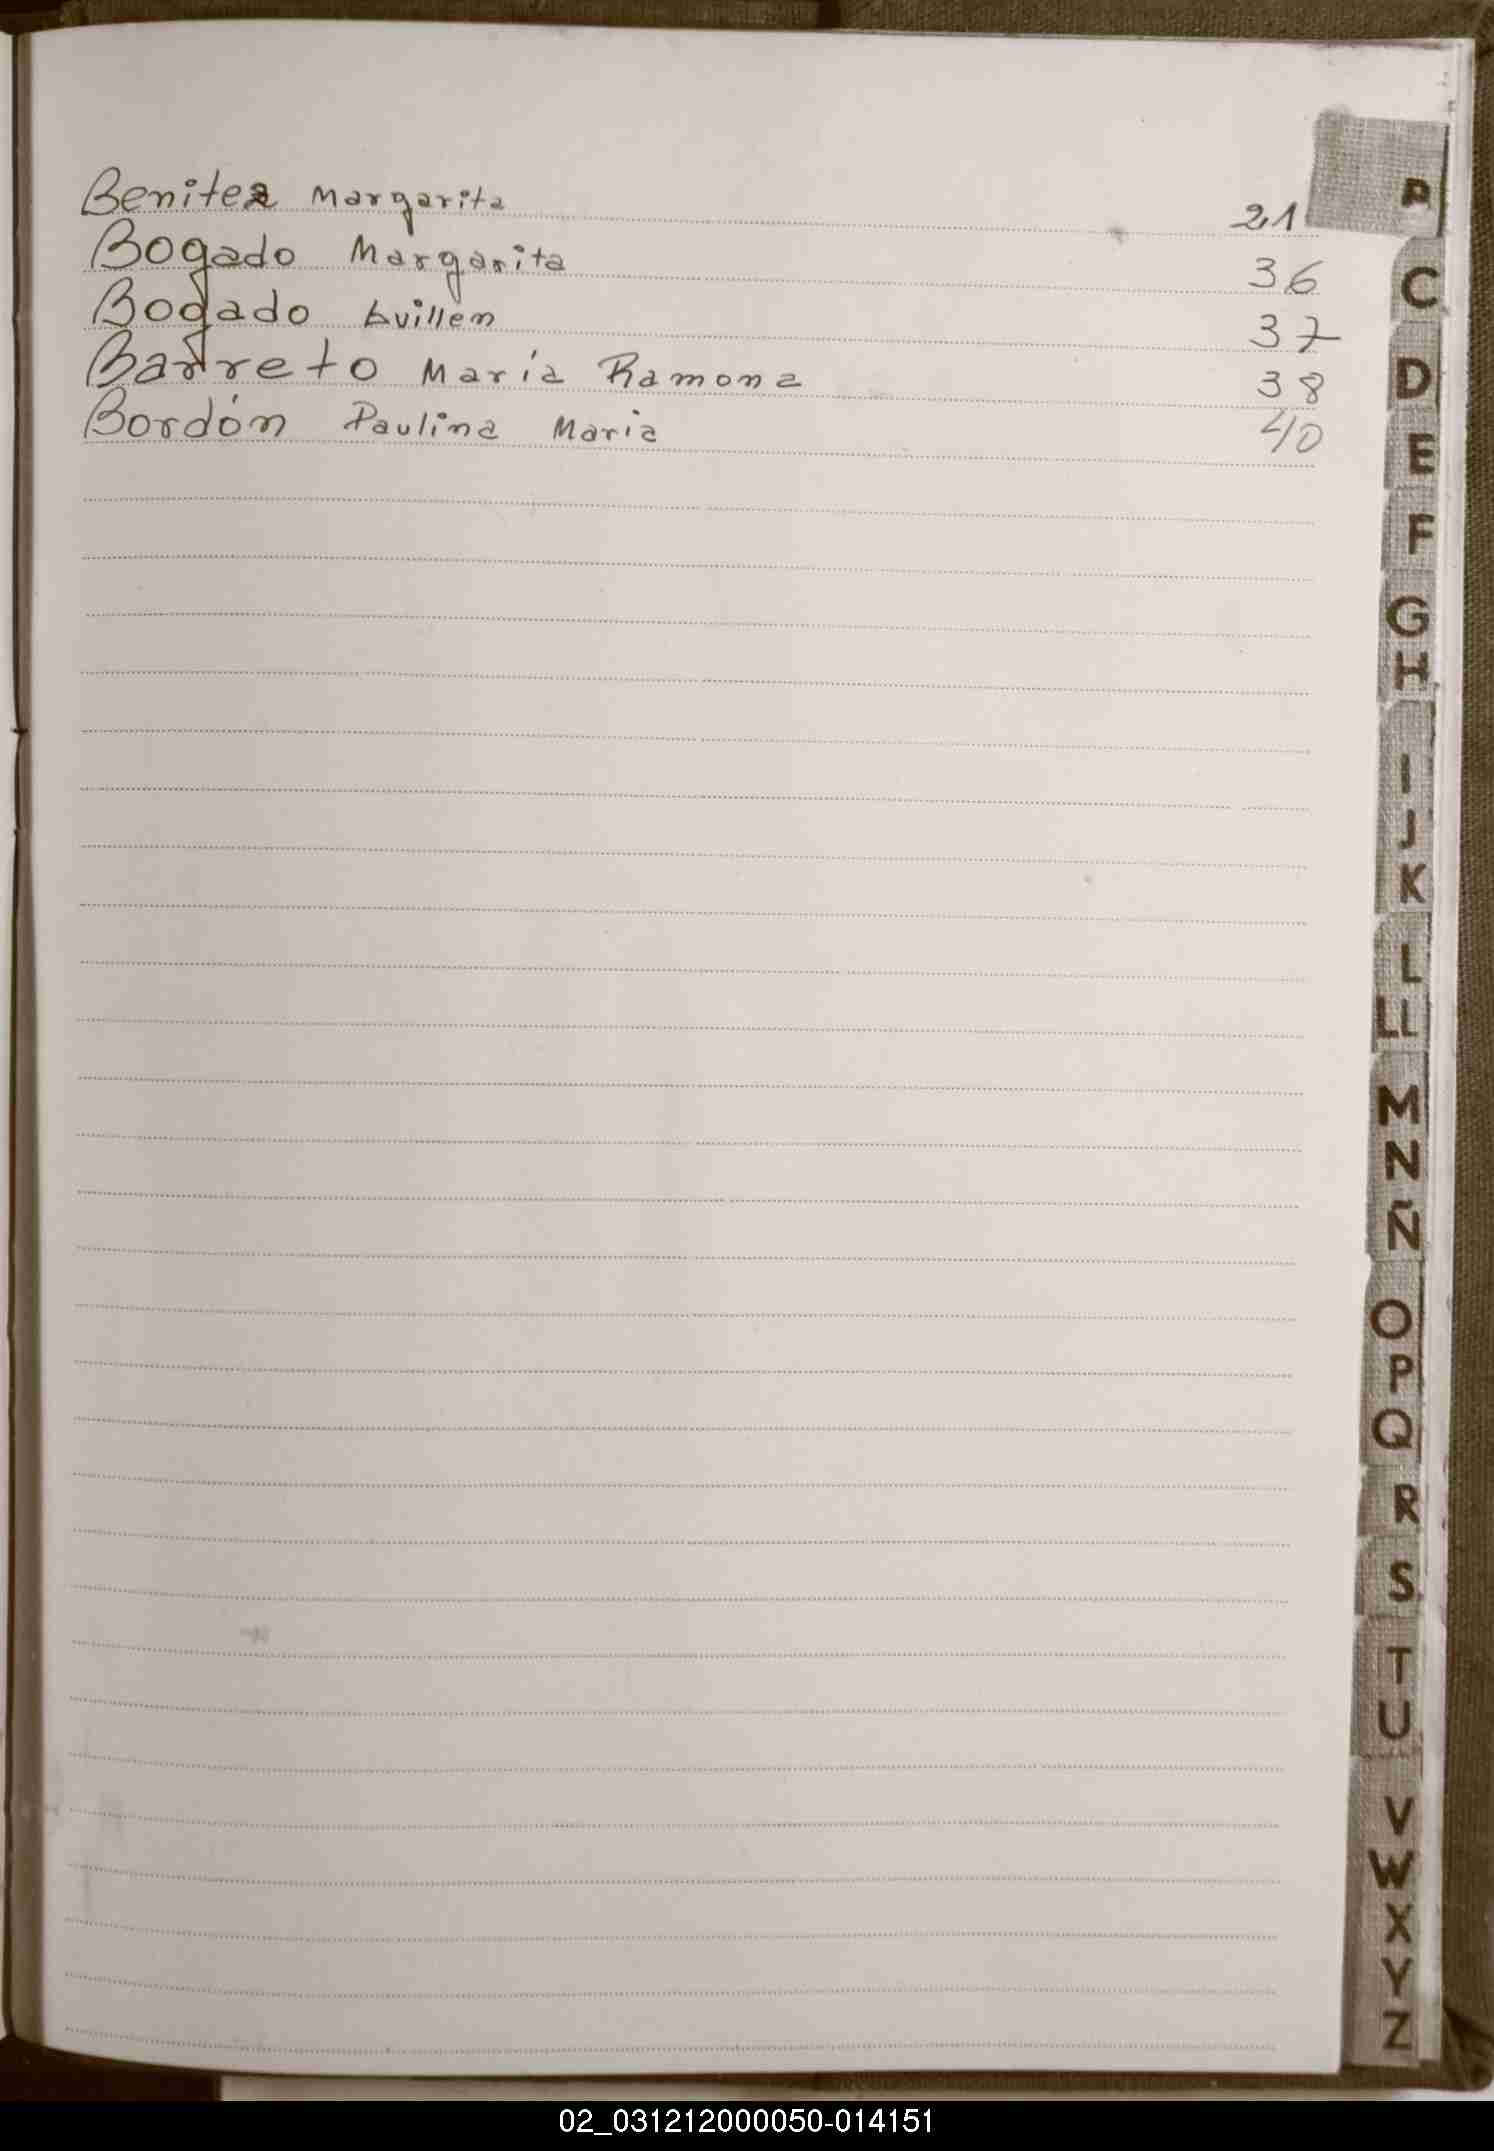 Benitez Margarita 21
Bogado Margarita 36
Bogado 37
Barreto María Ramona 38
Bordón Paulina Maria 40
B
C
D
E
F
G
H
I
J
K
L
LL
M
N
Ñ
O
P
Q
R
S
T
U
V
W
X
Y
Z
02_031212000050-014151